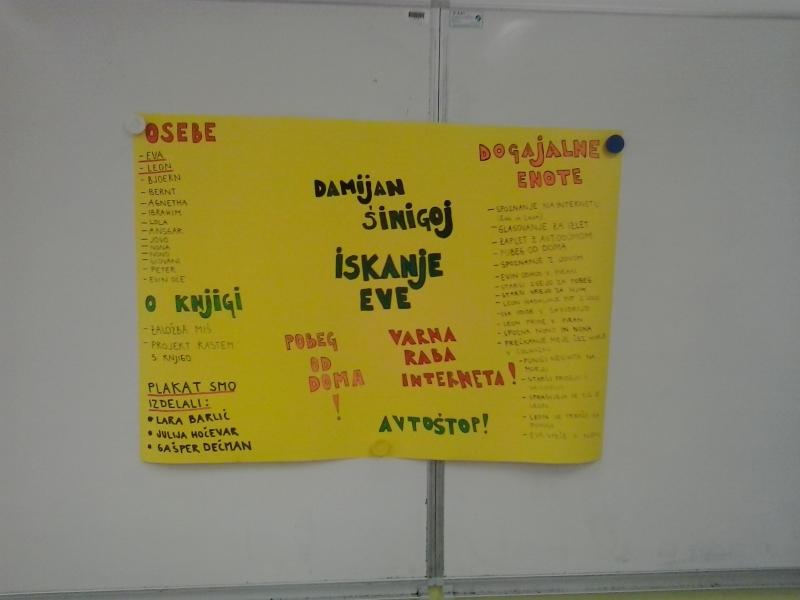 OSEBE
- EVA
- LEON
- BJOERN
- BERNT
- AGNETHA
- IBRAHIM
- LOLA
- ANSGAR
- JOVO
- NONA
- NONO
- GIOVANI
- PETER
- EVIN OČE
O KNJIGI
- ZALOŽBA MIŠ
- PROJEKT RASTEM
S KNJIGO
PLAKAT SMO
IZDELALI:
• LARA BARLIČ
• JULIJA HOČEVAR
• GAŠPER DEČMAN
DAMIJAN
ŠINIGOJ
ISKANJE
EVE
POBEG
OD
DOMA
!
VARNA
RABA
INTERNETA!
AVTOŠTOP!
DOGAJALNE
ENOTE
- SPOZNANJE NA INTERNETU
- GLASOVANJE ZA IZLET
- ZAPLET Z AVTODOMOM
- POBEG OD DOMA
- SPOZNANJE Z JOVOM
- EVIN ODHOD V PIRAN
- STARŠI IZVEJO ZA POBEG
- LEON PRIDE V PIRAN
- SPOZNA NONO IN NONA
- PREČKANJE MEJE ČEZ MORJE